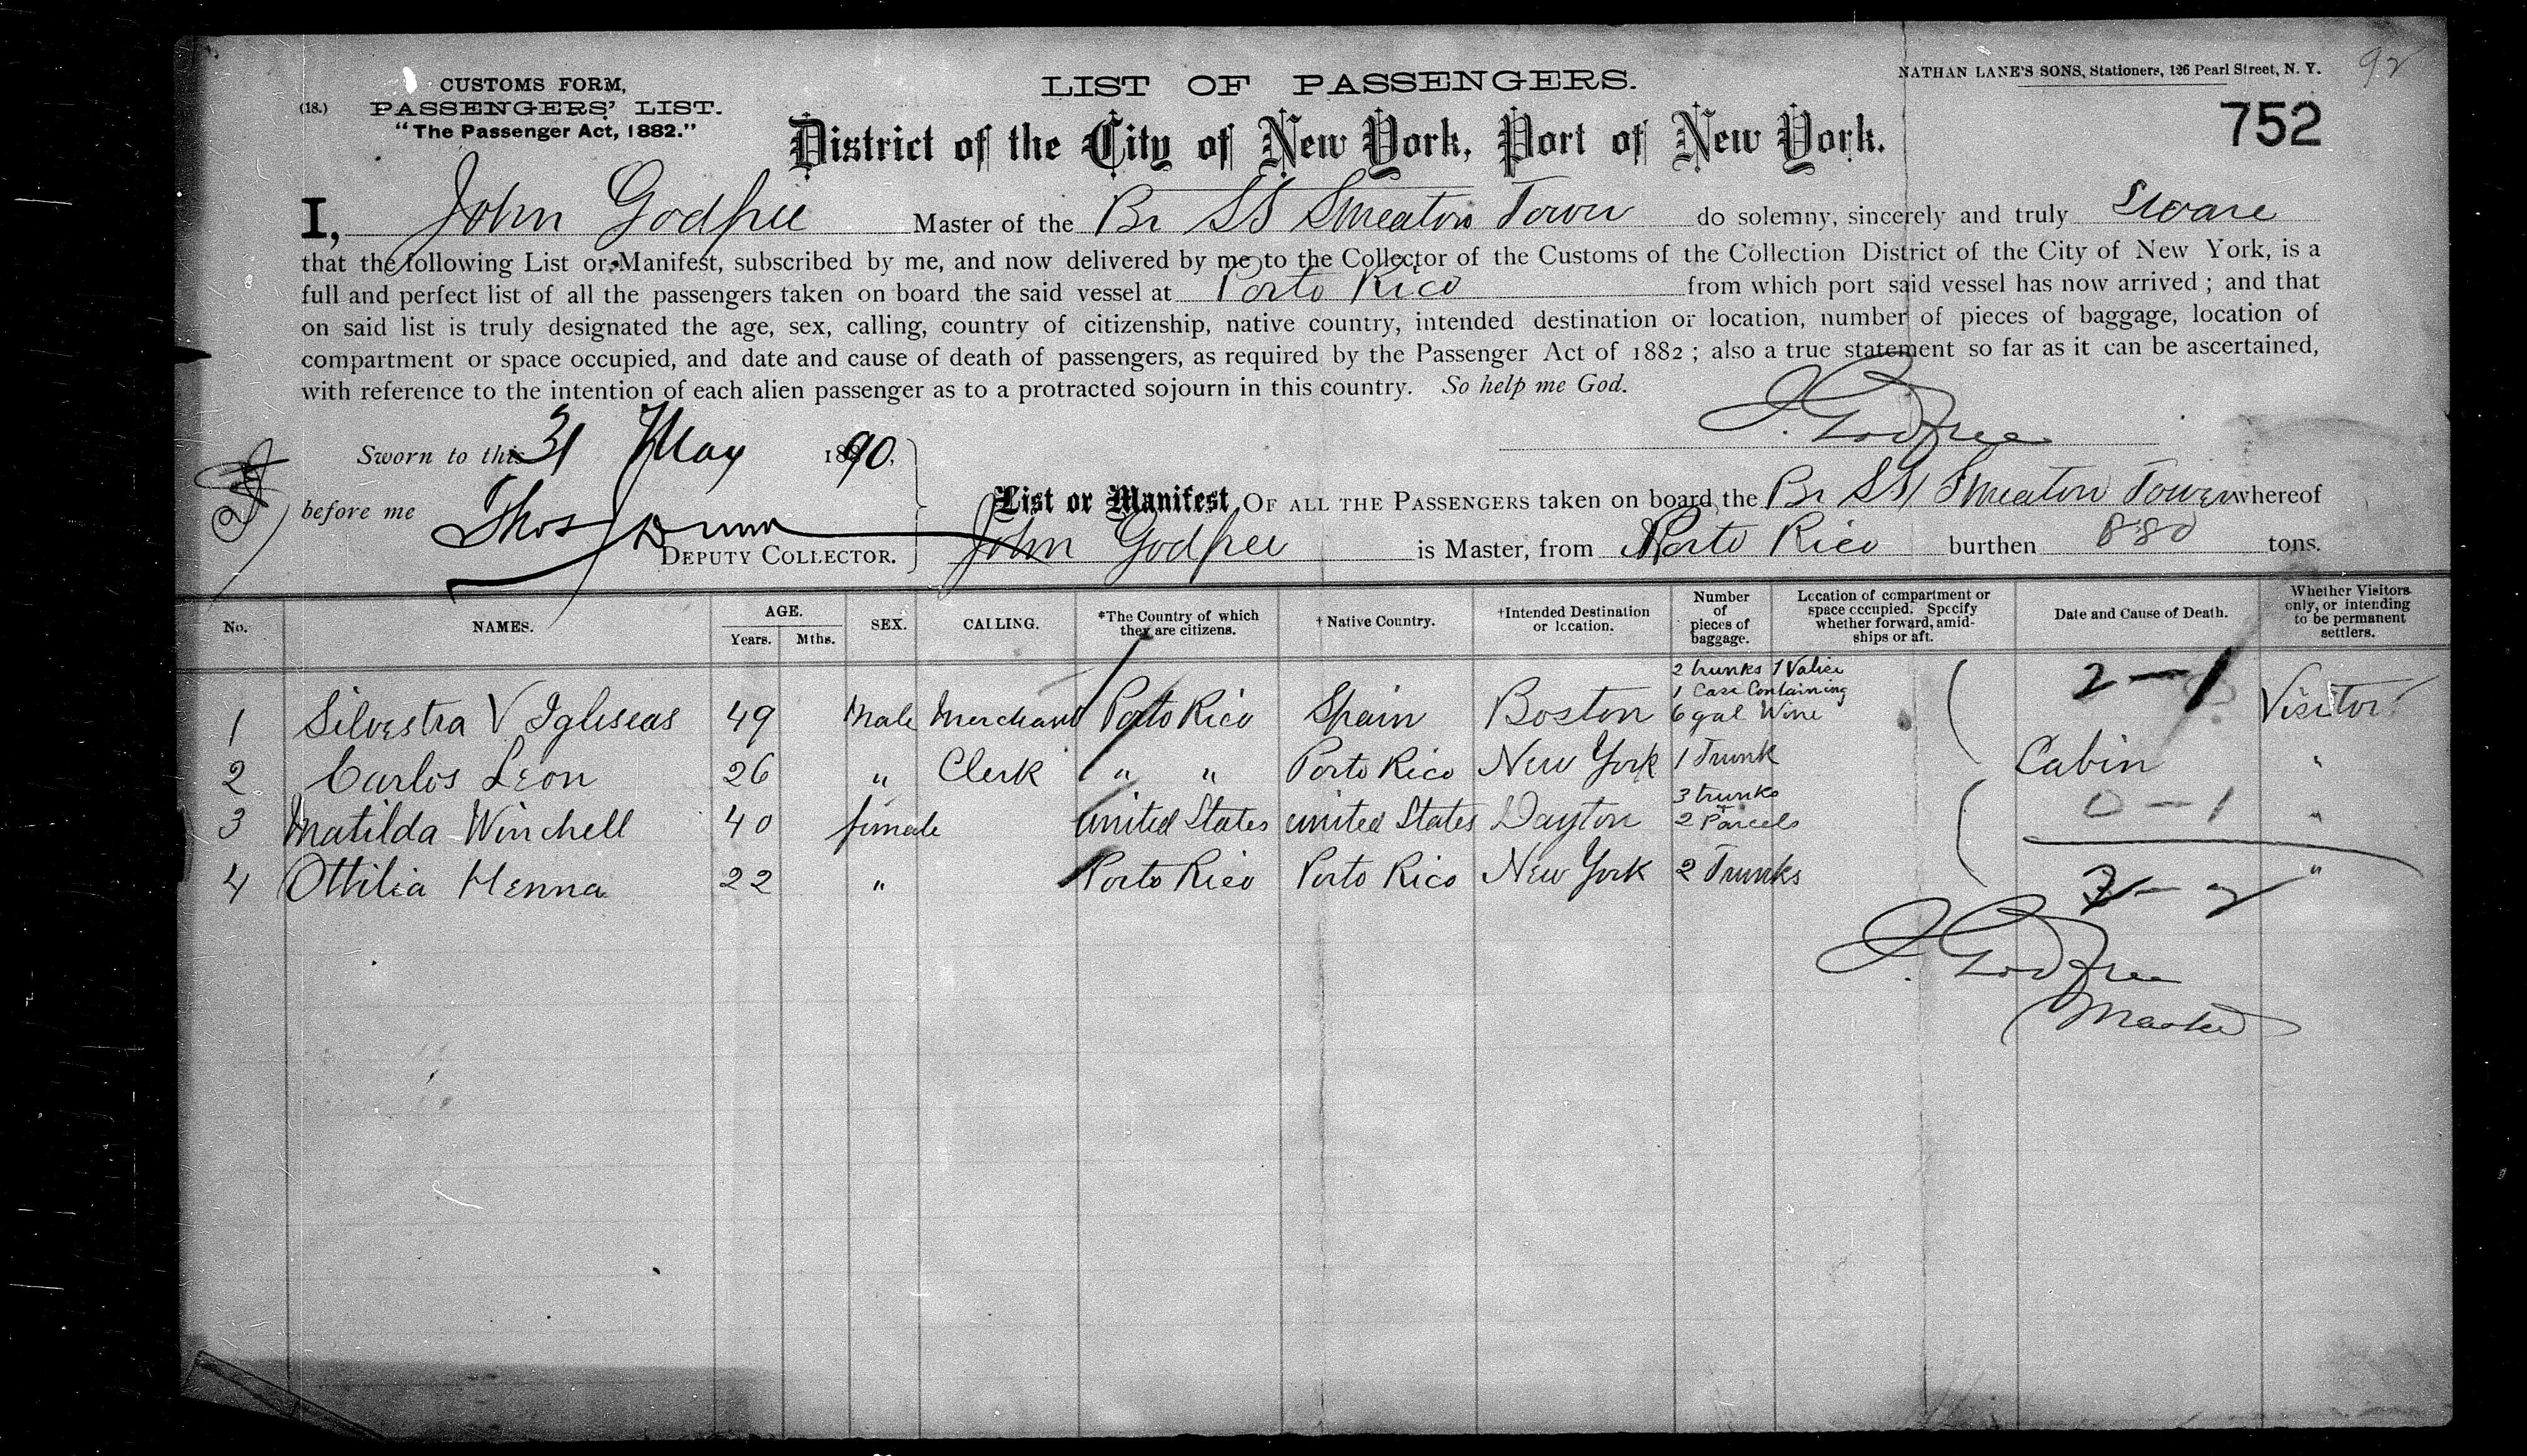 92
CUSTOMS FORM,
(18.) PASSENGERS' LIST.
"The Passenger Act, 1882."
LIST OF PASSENGERS.
NATHAN LANE'S SONS, Stationers, 126 Pearl Street, N. Y.
752
District of the City of New York, Port of New York.
I, John Godfree Master of the Br SS Smeaton Tower do solemny, sincerely and truly Sware
that the following List or Manifest, subscribed by me, and now delivered by me to the Collector of the Customs of the Collection District of the City of New York, is a
full and perfect list of all the passengers taken on board the said vessel at Porto Rico from which port said vessel has now arrived ; and that
on said list is truly designated the age, sex, calling, country of citizenship, native country, intended destination or location, number of pieces of baggage, location of
compartment or space occupied, and date and cause of death of passengers, as required by the Passenger Act of 1882 ; also a true statement so far as it can be ascertained,
with reference to the intention of each alien passenger as to a protracted sojourn in this country. So help me God.
J. Godfree
Sworn to this 31 May 1890,
before me Thos Dunn
DEPUTY COLLECTOR.
List or Manifest OF ALL THE PASSENGERS taken on board the Br SS Smeaton Tower whereof
John Godfree is Master, from Porto Rico burthen 880 tons.
No. NAMES. AGE. Years. Mths. SEX. CALLING. *The Country of which they are citizens. † Native Country. †Intended Destination or location. Number of pieces of baggage. Location of compartment or space occupied. Specify whether forward, amidships or aft. Date and Cause of Death. Whether Visitors only, or intending to be permanent settlers.
2 trunks 1 Valice
1 Case Containing
1 Silvestra V Igliseas 49 Male Merchant Porto Rico Spain Boston 6 gal Wine 2 — 1 Visitor
2 Carlos Leon 26 " Clerk " " Porto Rico New York 1 Trunk Cabin "
3 trunks
3 Matilda Winchell 40 female United States United States Dayton 2 Parcels 0 — 1 "
4 Ottilia Henna 22 " Porto Rico Porto Rico New York 2 Trunks 2 "
J. Godfree
Master